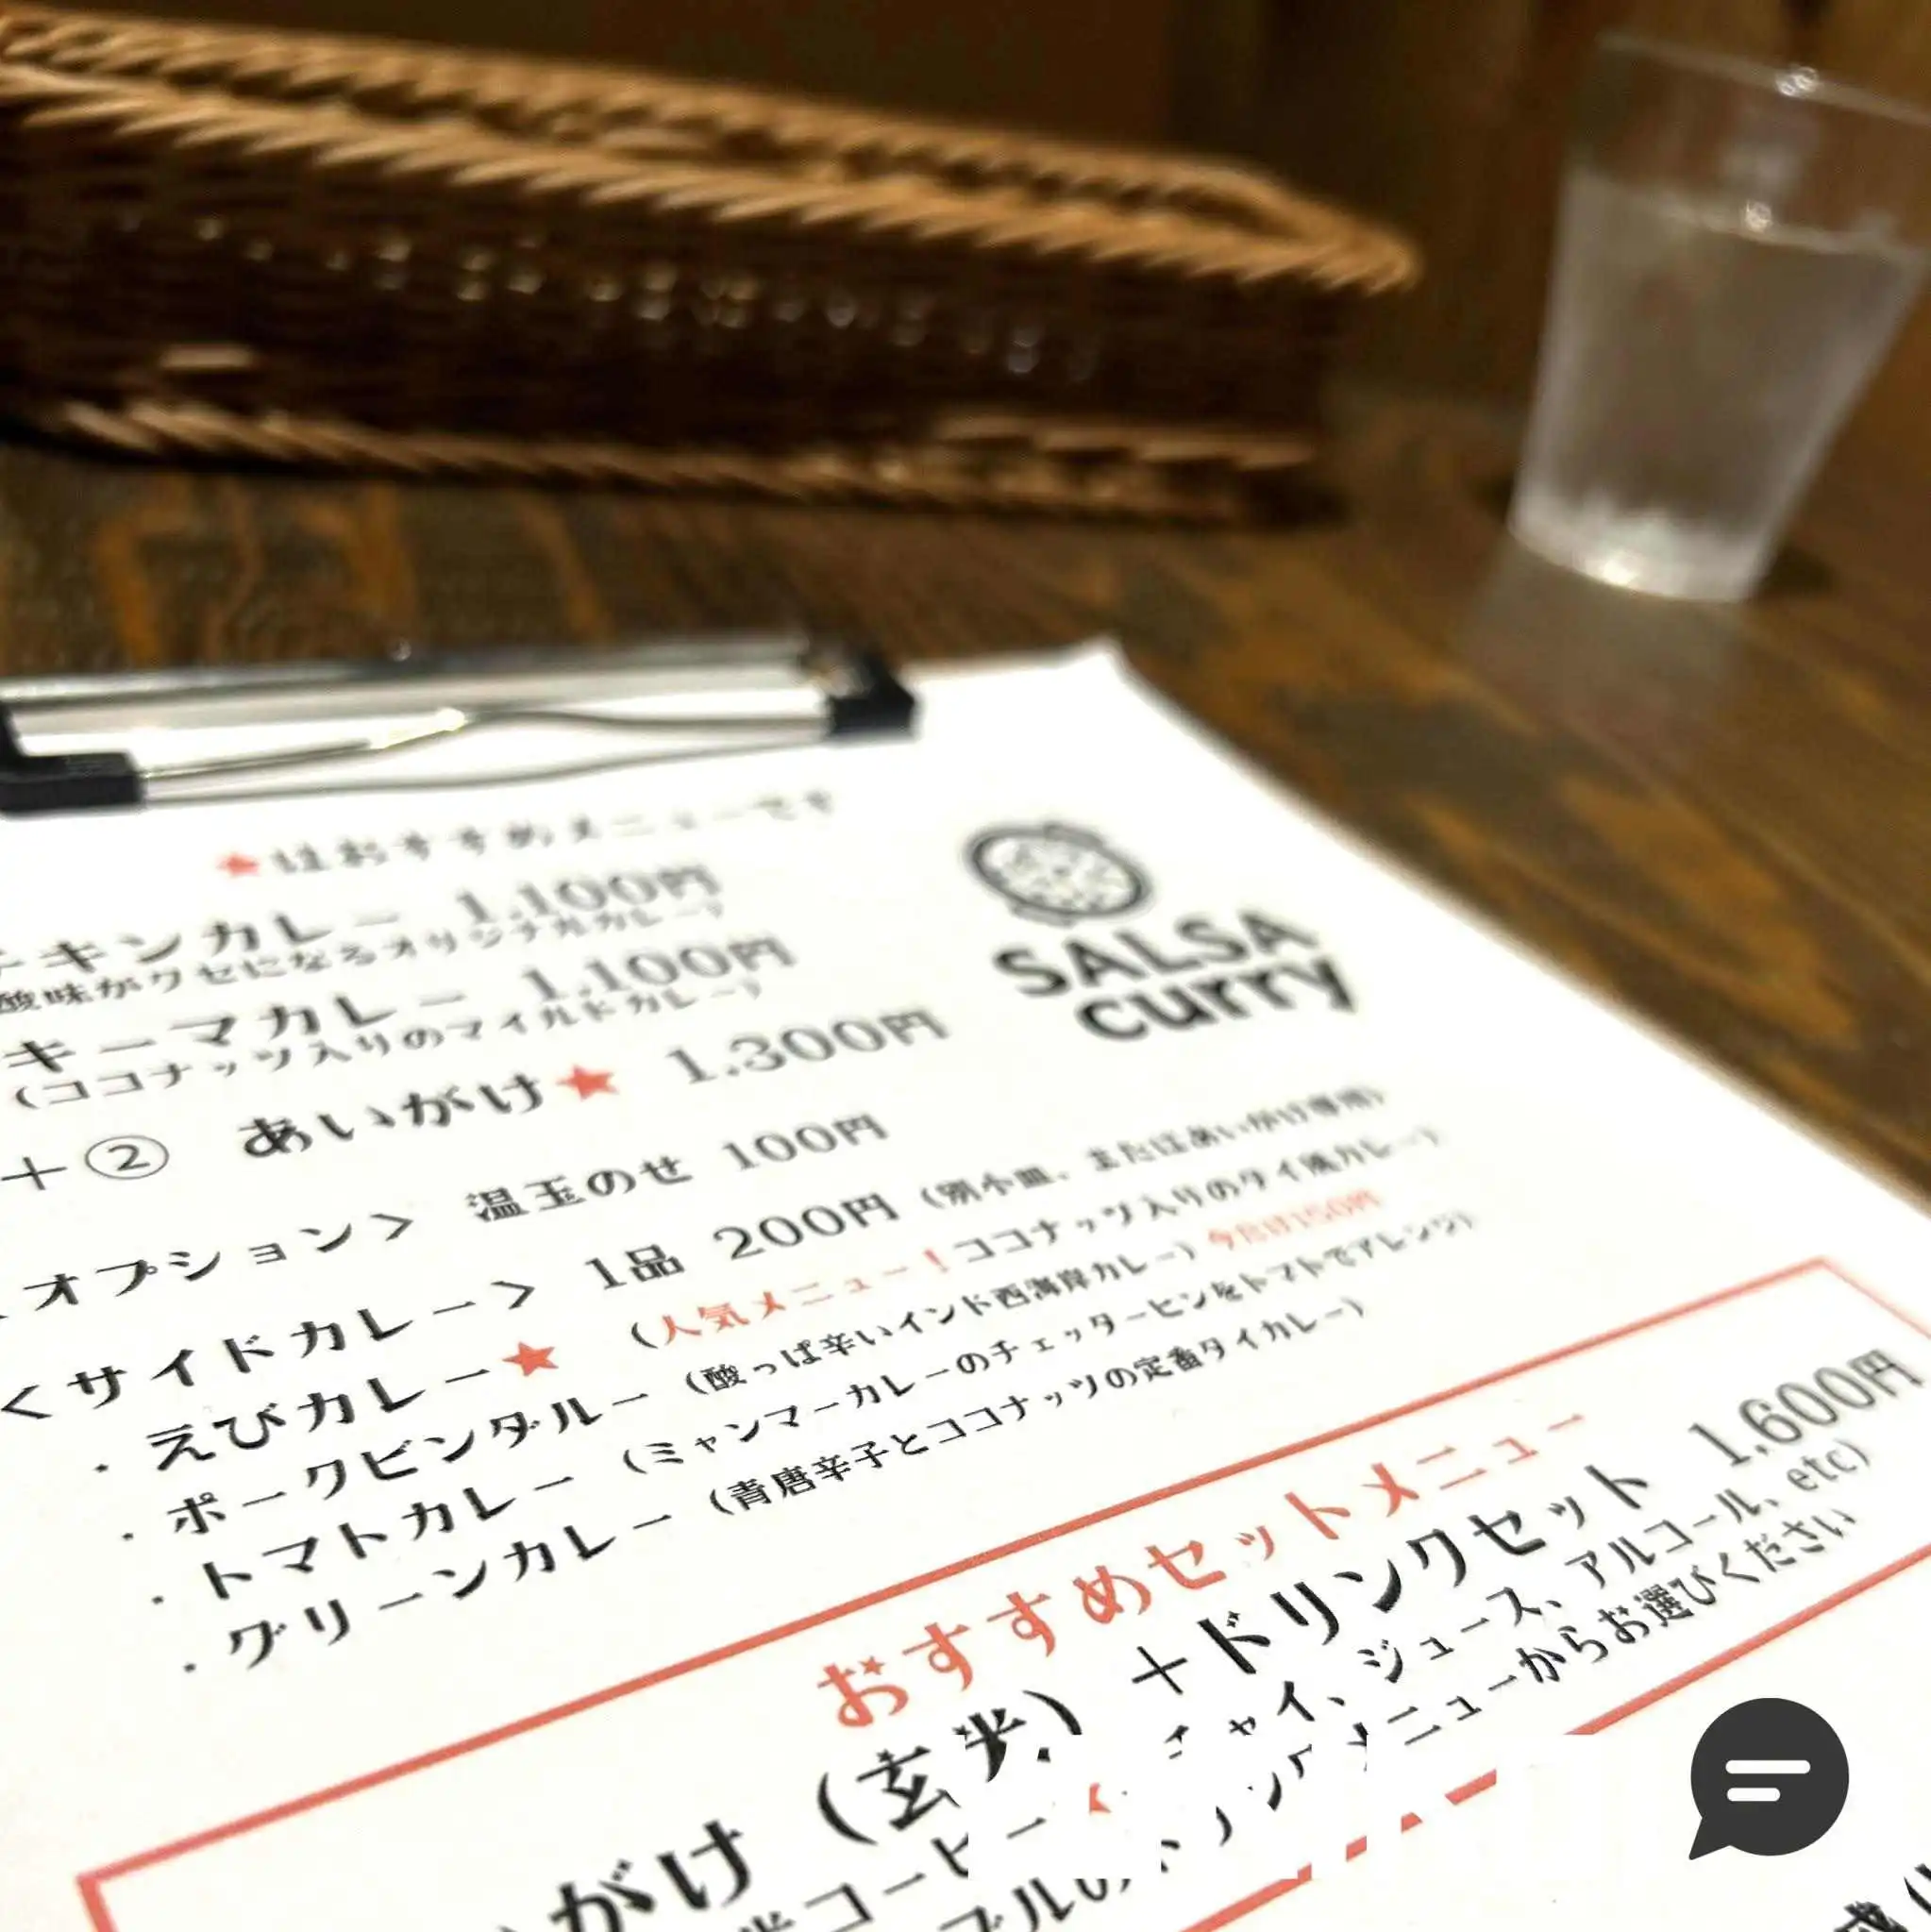 ★はおすすめメニューです
チキンカレー 1,100円
酸味がクセになるオリジナルカレー)
キーマカレー 1,100円
(ココナッツ入りのマイルドカレー)
+② あいがけ★ 1,300円
SALSA
curry
オプション> 温玉のせ 100円
<サイドカレー> 1品 200円 (別小皿、またはあいがけ専用)
・えびカレー★ (人気メニュー!ココナッツ入りのタイ風カレー)
・ポークビンダルー (酸っぱ辛いインド西海岸カレー) 今だけ150円
・トマトカレー (ミャンマーカレーのチェッターヒンをトマトでアレンジ)
・グリーンカレー (青唐辛子とココナッツの定番タイカレー)
おすすめセットメニュー
がけ (玄米) +ドリンクセット 1,600円
コーヒー チャイ、ジュース、アルコール、etc)
ブルの ドリンクメニューからお選びください